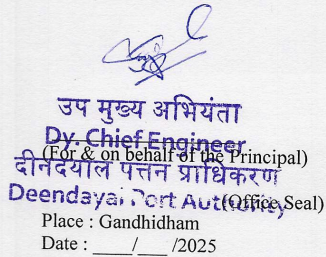 उप मुख्य अभियंता
Dy. Chief Engineer
(For & on behalf of the Principal)
दीनदयाल पत्तन प्राधिकरण
Deendayal Port Authority
(Office Seal)
Place : Gandhidham
Date : ____/___ /2025